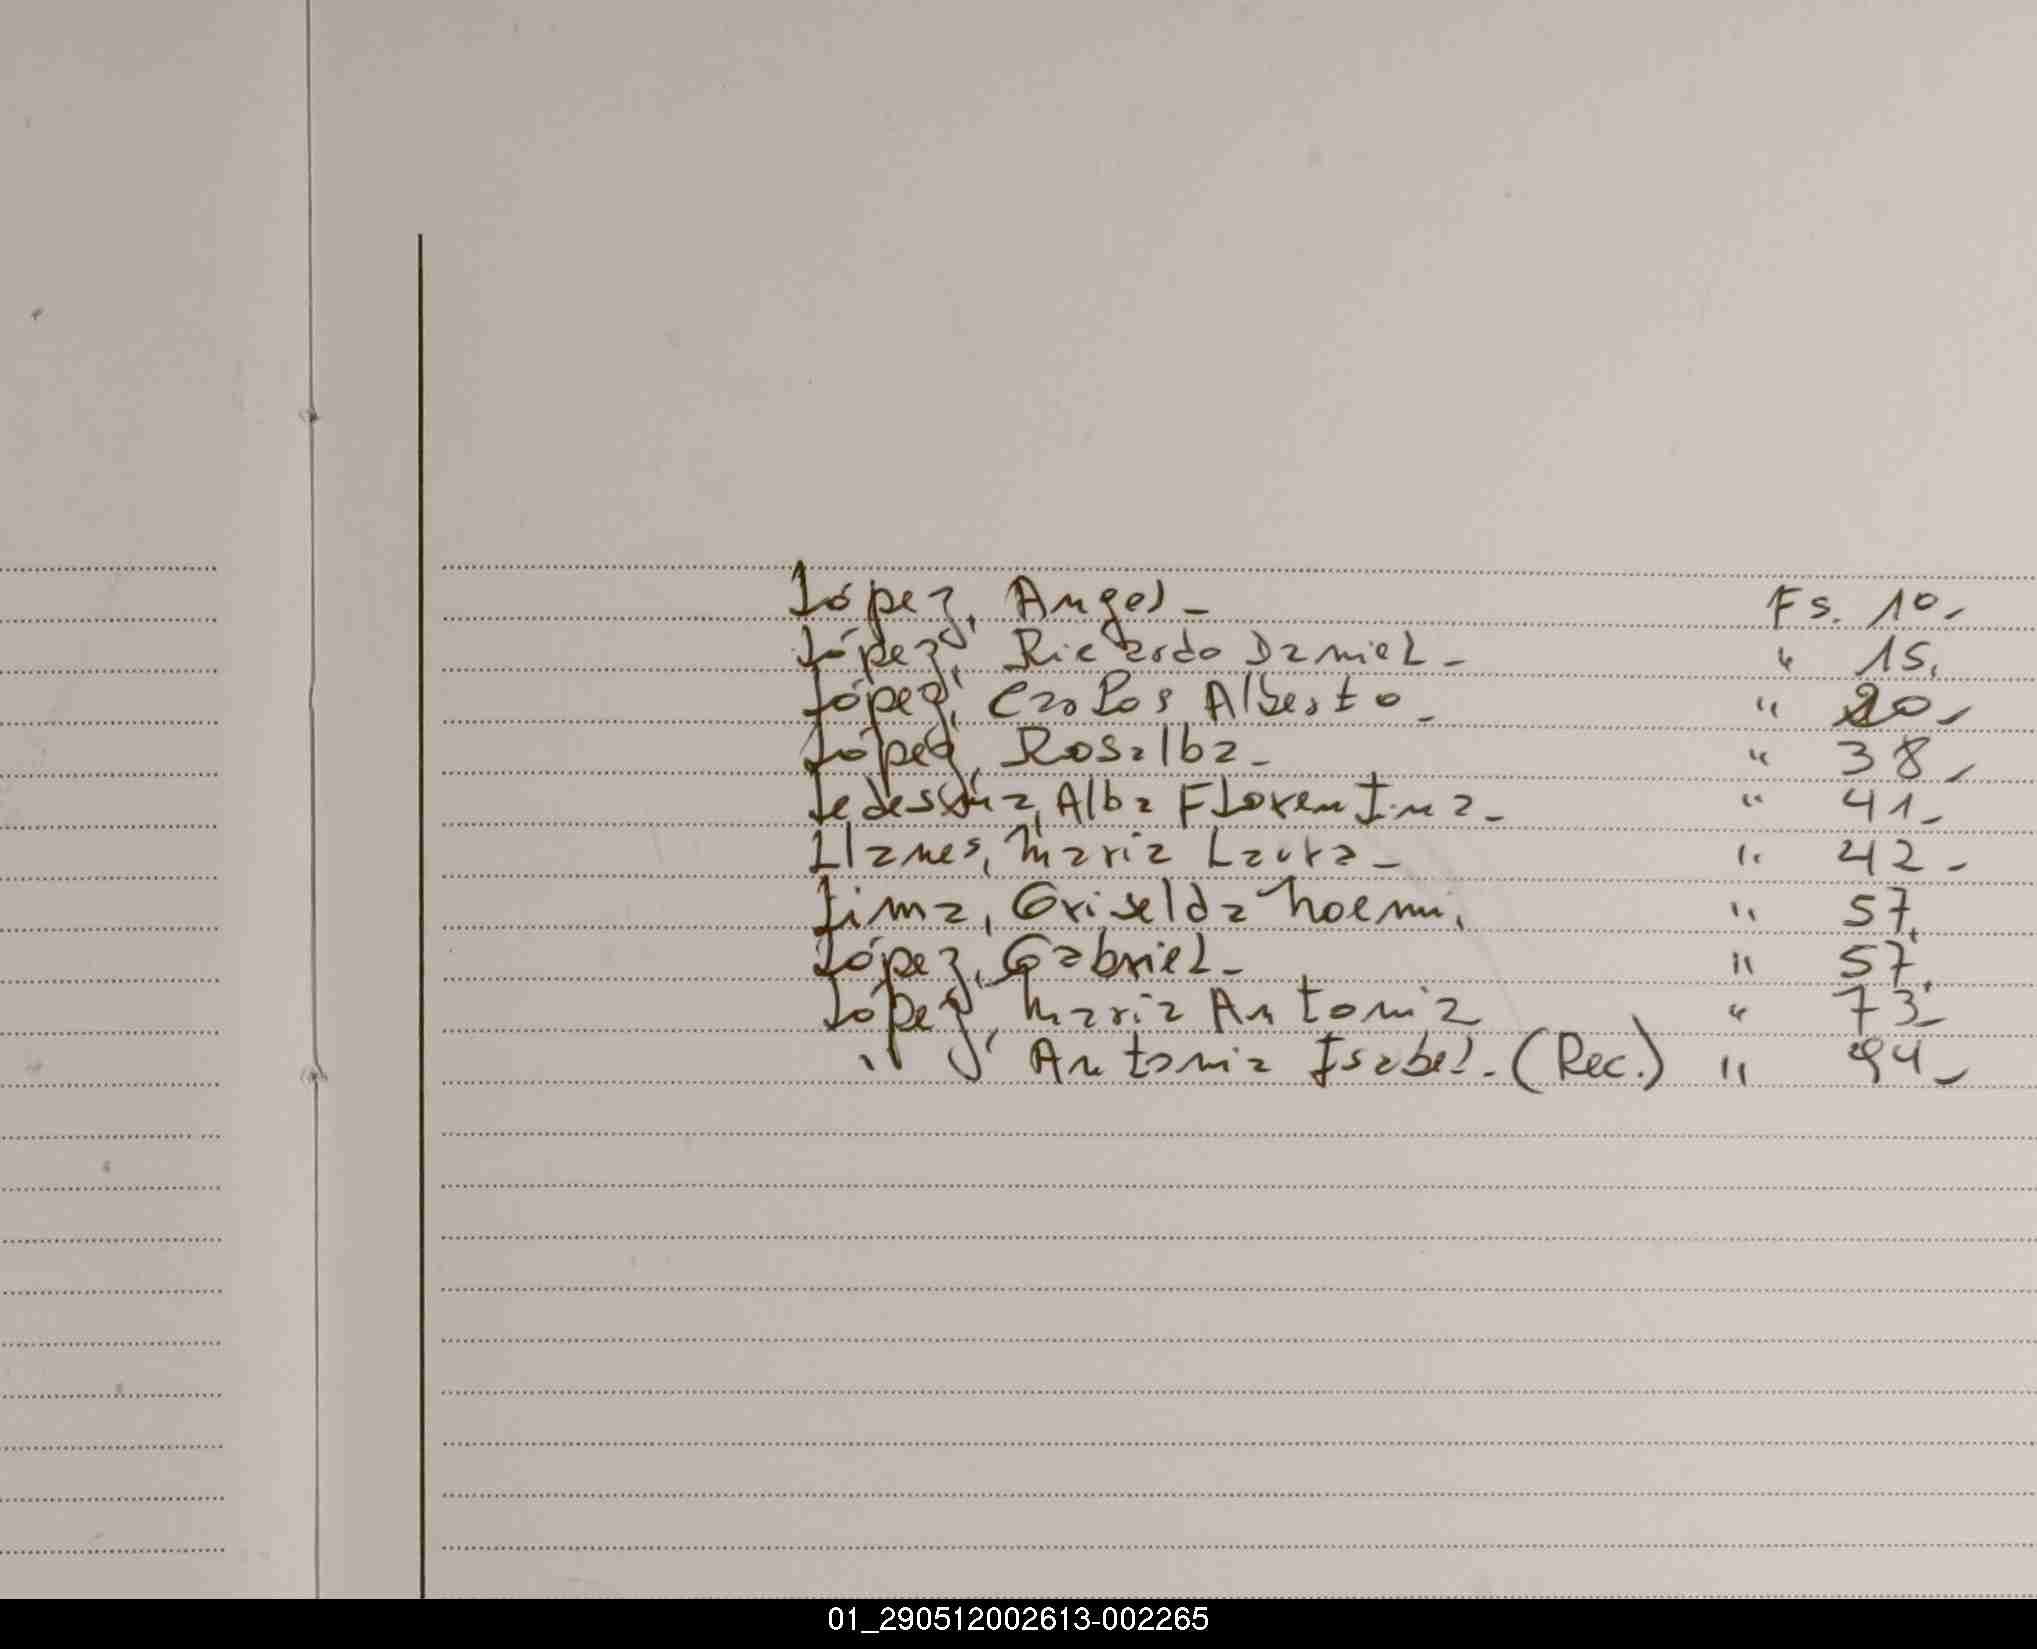 López, Angel - Fs. 10 -
López, Ricardo Daniel - " 15.
López, Carlos Alberto - " 20 -
López, Rosalba - " 38 -
Ledesma, Alba Florentina - " 41 -
Llanes, Maria Laura - " 42 -
Lima, Griselda Noemi. " 57.
López, Gabriel - " 57.
López, Maria Antonia " 73 -
" , Antonia Isabel. (Rec.) " 94 -
01_290512002613-002265